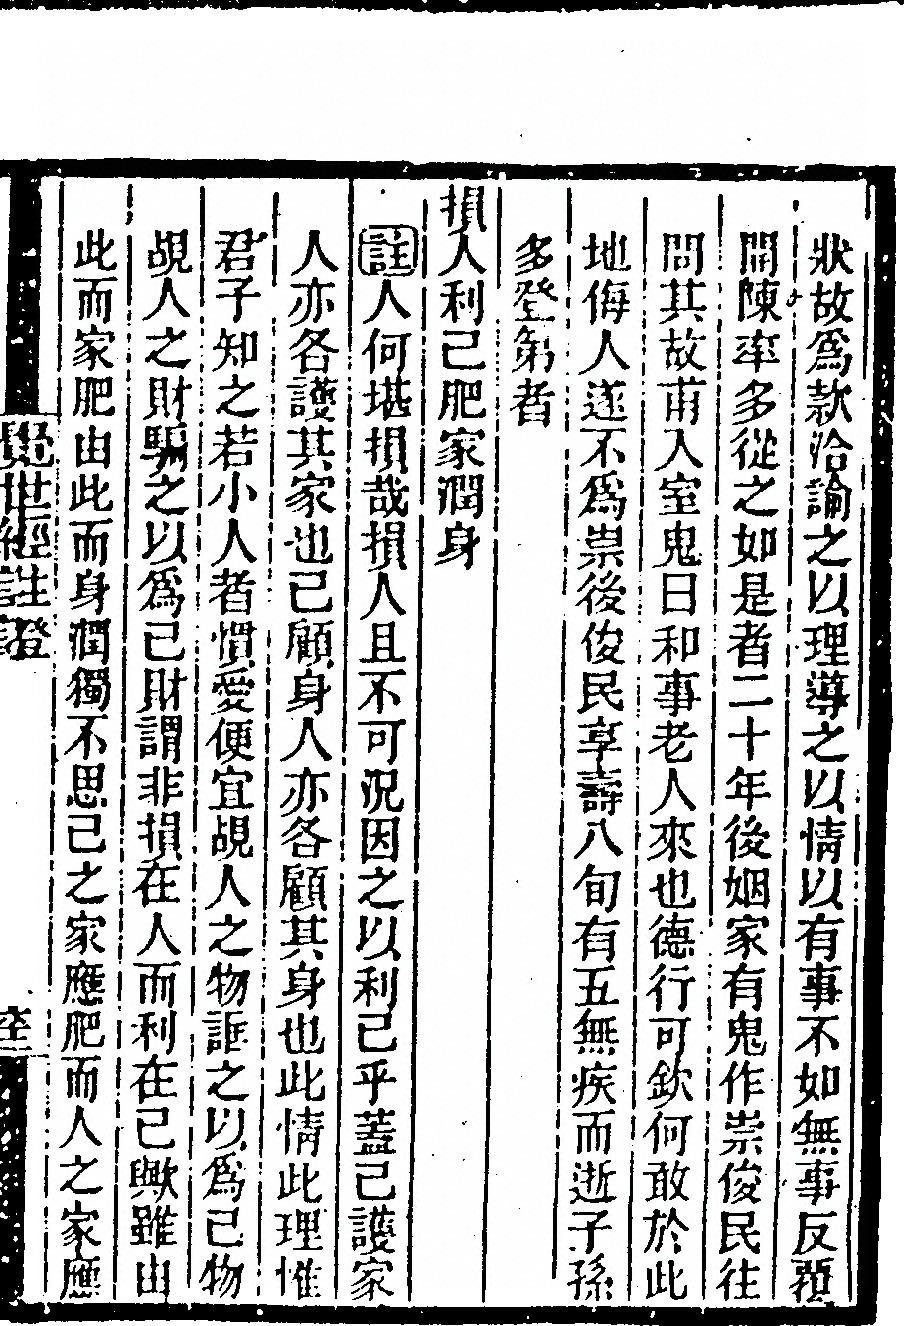 狀故爲款洽論之以理導之以情以有事不如無事反覆
開陳率多從之如是者二十年後姻家有鬼作祟俊民往
問其故甫入室鬼曰和事老人來也德行可欽何敢於此
地侮人遂不爲祟後俊民享壽八旬有五無疾而逝子孫
多登第者
損人利己肥家潤身
註人何堪損哉損人且不可況因之以利己乎蓋己護家
人亦各護其家也己顧身人亦各顧其身也此情此理惟
君子知之若小人者慣愛便宜覘人之物誆之以爲己物
覘人之財騙之以爲己財謂非損在人而利在己歟雖由
此而家肥由此而身潤獨不思己之家應肥而人之家應
覺世經註證